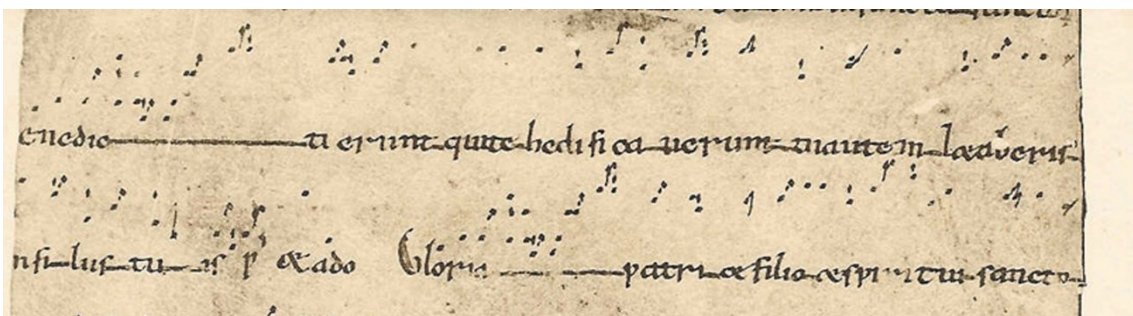 enedic ti erunt qui te hedificaverunt tu autem lætaveris
in filiis tuis p exado Gloria patri et filio et spiritui sancto